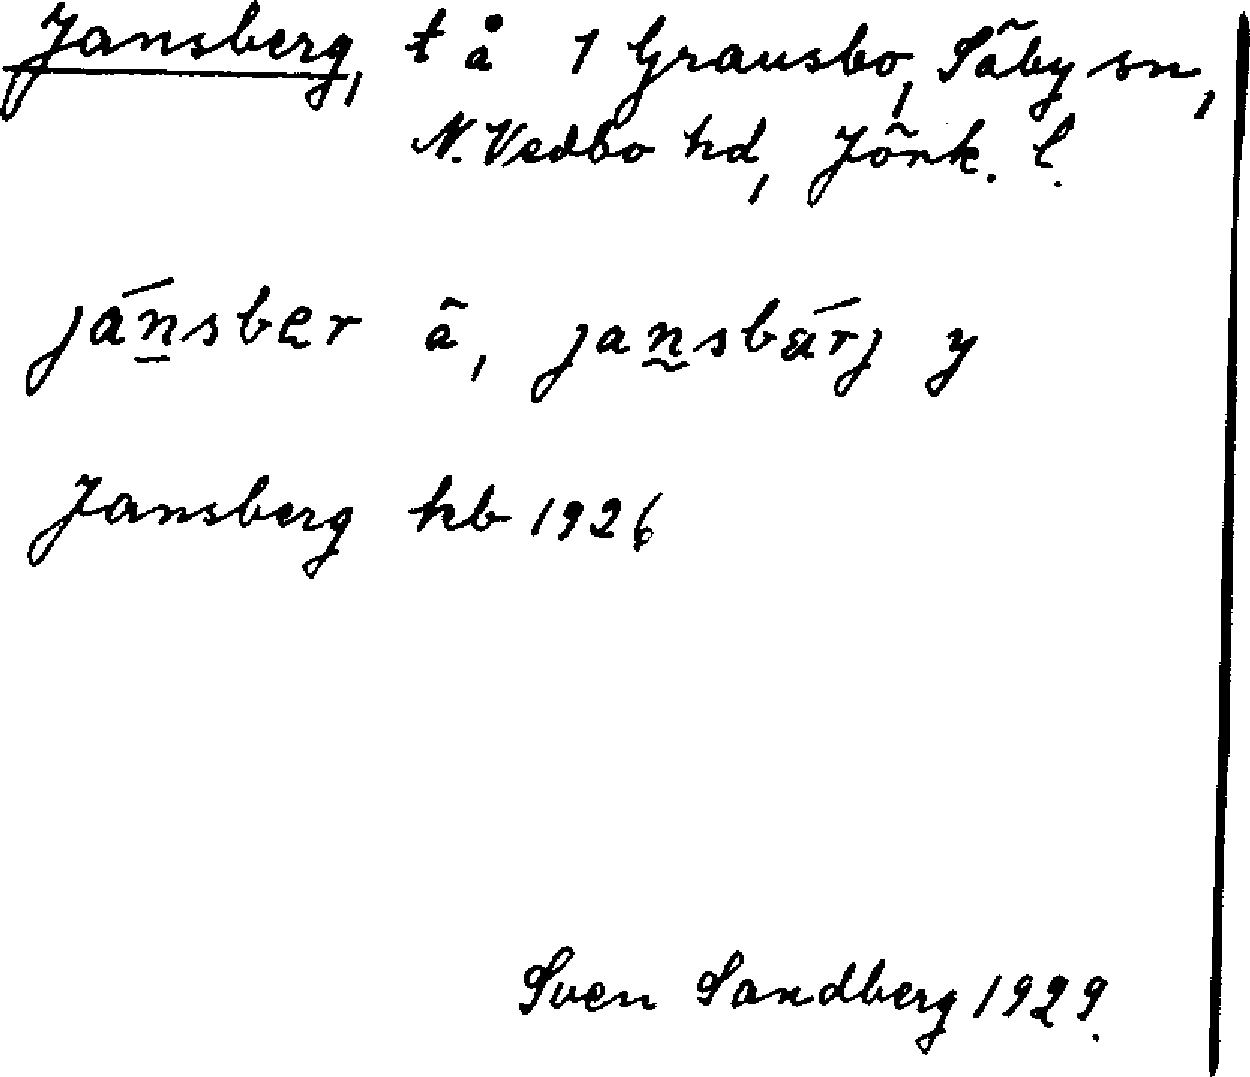 Jansberg, t å 1 Grausbo, Säby sn,
N. Vedbo hd, Jönk. l.
jánsber ä, jansbärj y
Jansberg kb 1926
Sven Sandberg 1929.